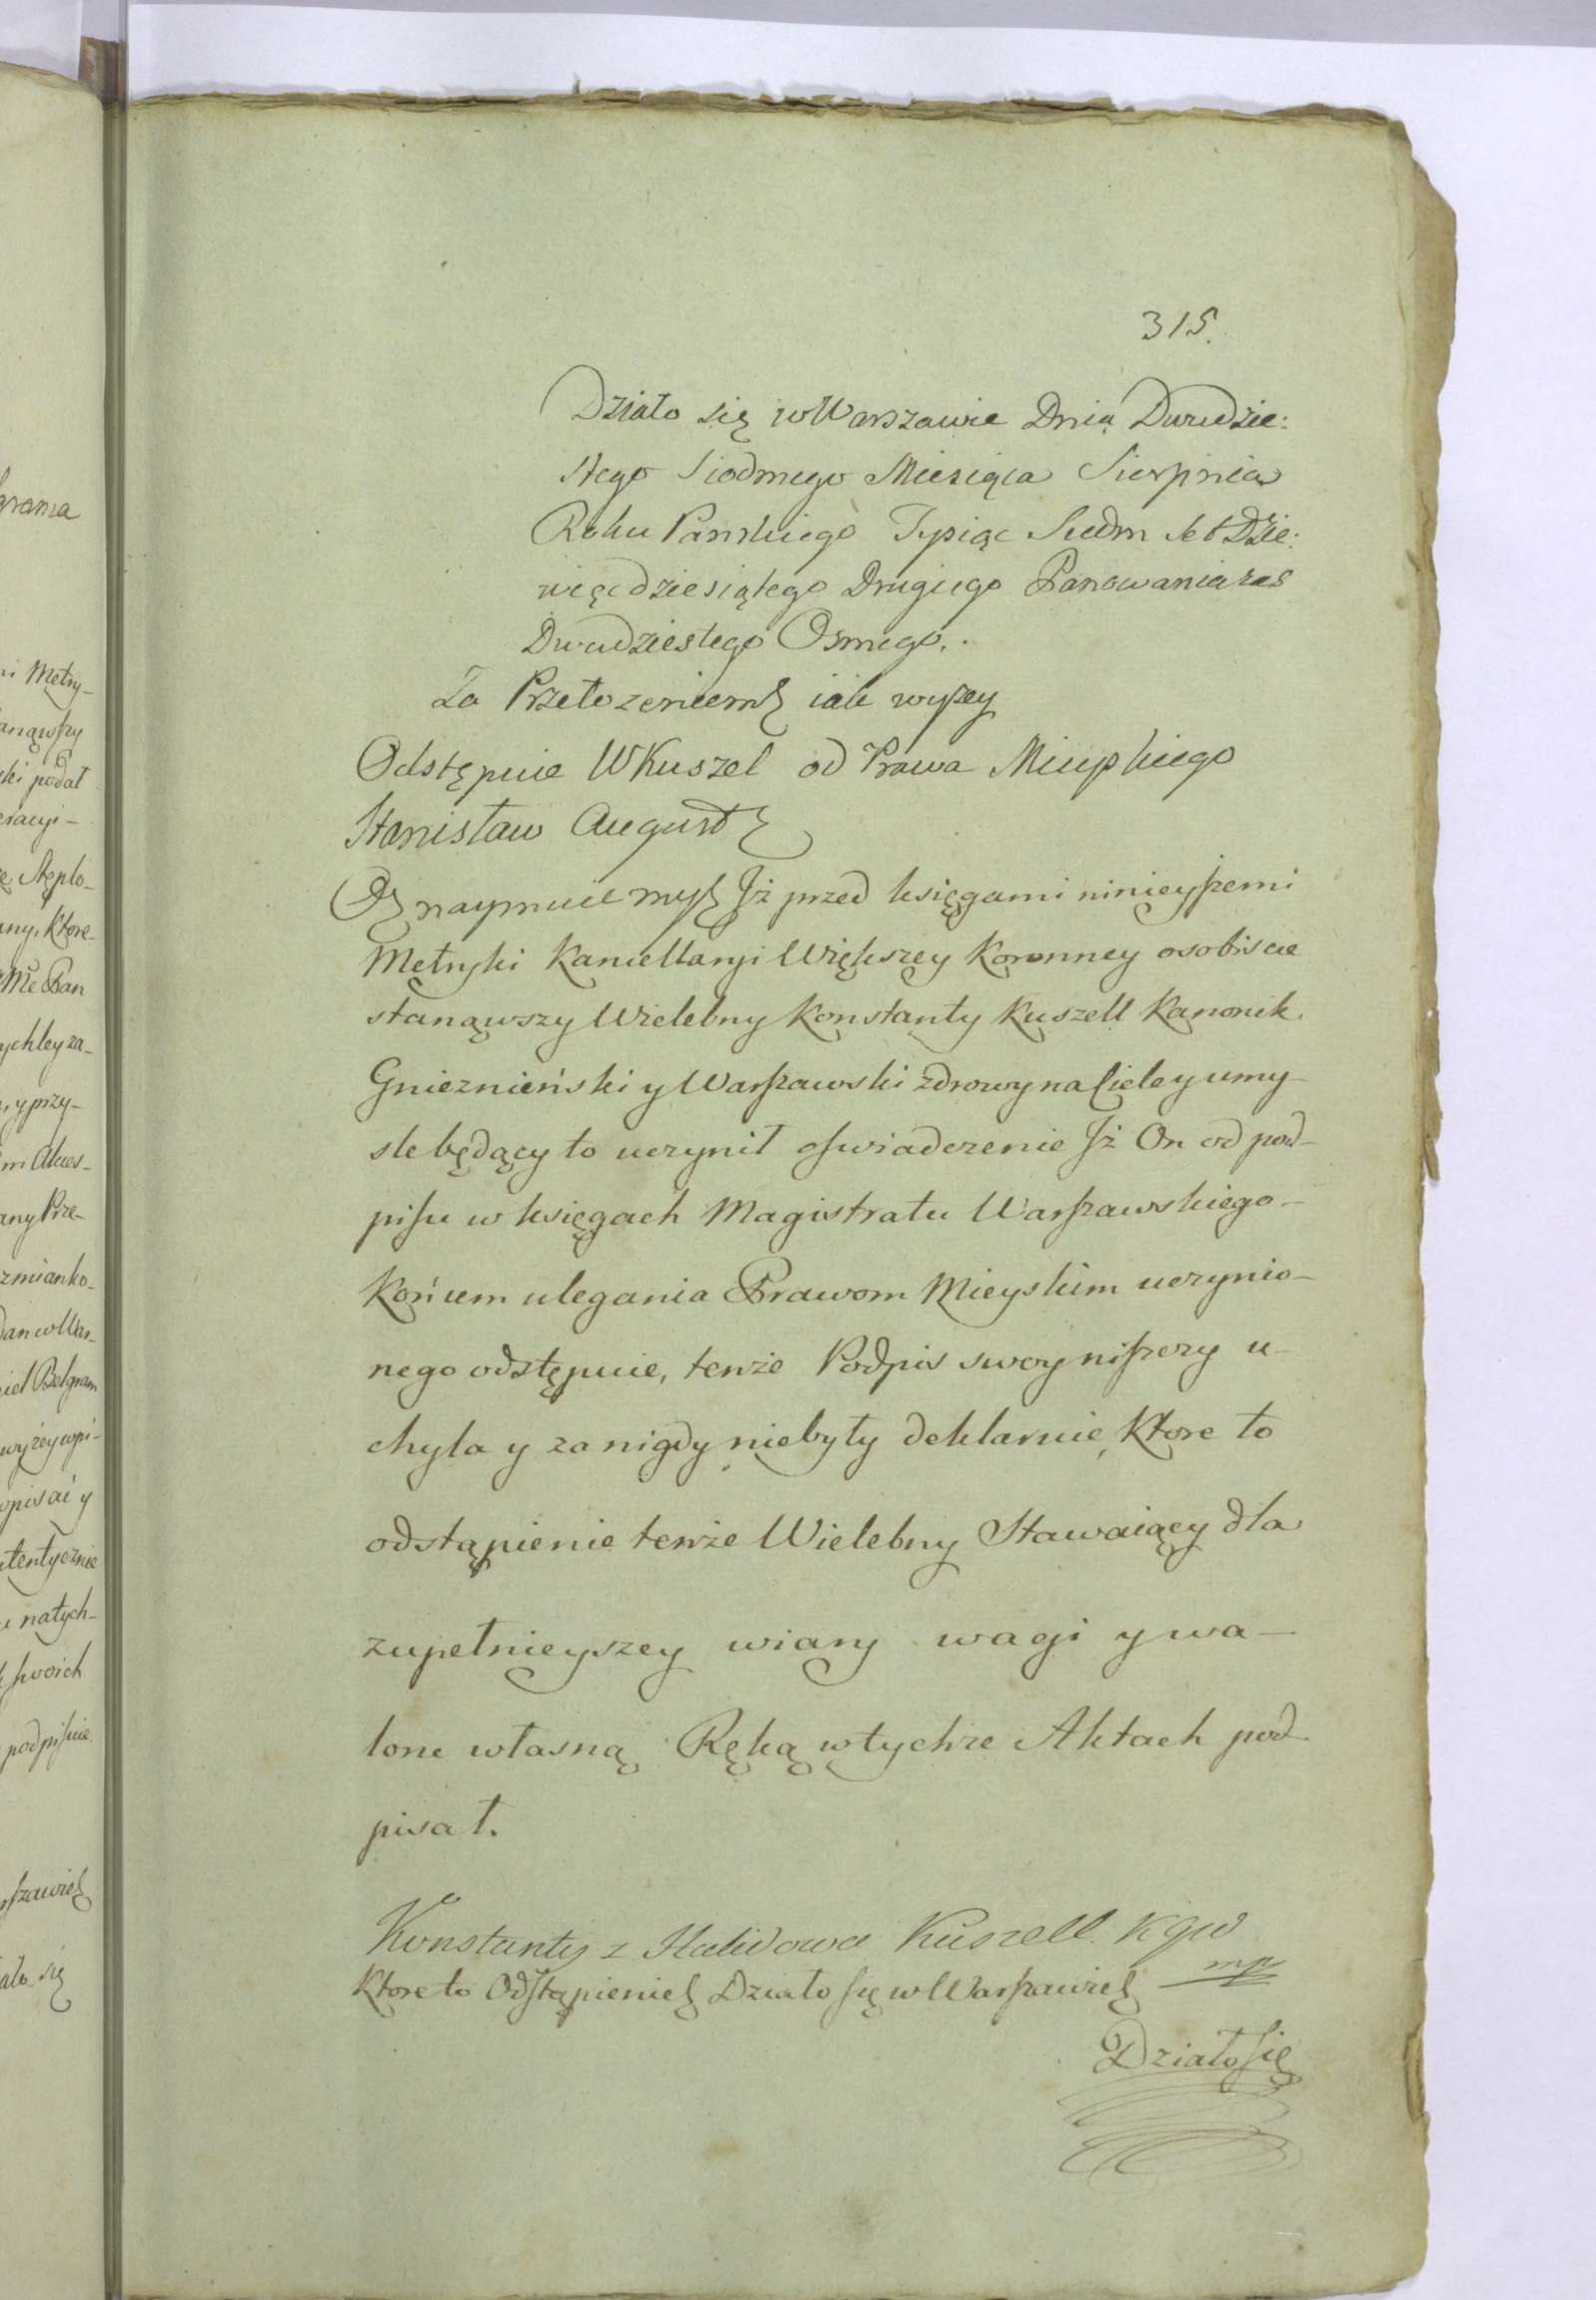 315.
Działo się w Warszawie Dnia Dwudzie:
stego Siodmego Miesiąca Sierpnia
Roku Pańskiego Tysiąc Siedm Set Dzie:
więcdziesiątego Drugiego Panowania zas
Dwudziestego Osmego.
Za Przełozeniem iak wyzey
Odstępuie W Kuszel od Prawa Mieyskiego
Stanisław August
Oznaymuiemy Jż przed księgami ninieyszemi
Metryki Kancellaryi Większey Koronney osobiscie
stanąwszy Wielebny Konstanty Kuszell Kanonik
Gniezninński y Warszawski zdrowy na Ciele y umy-
sle będący to uczynił oswiadczenie Jż On od pod-
pisu w księgach Magistratu Warszawskiego-
Końcem ulegania Prawom Mieyskim uczynio-
nego odstępuie, tenże Podpis swoy niszczy u-
chyla y za nigdy niebyły deklaruie, Ktore to
odstąpienie tenże Wielebny Stawaiący dla
zupełnieyszey wiary wagi y wa-
loru własną Ręką w tychże Aktach pod-
pisał.
Konstanty z Kuszell KGW
mp
Ktore to Odstąpienie Działo się w Warszawie
Działo się
grania
Metry-
anąwszy
ski podał
eracyi-
Steplo-
any, Ktore-
Pan
ychley za-
y przy-
m Akces-
any Prze-
zmianko-
dan w War-
iel Belgram
wyżey wpi-
wpisać y
utentycznie
natych-
swoich
podpisuie
szawie
ało się